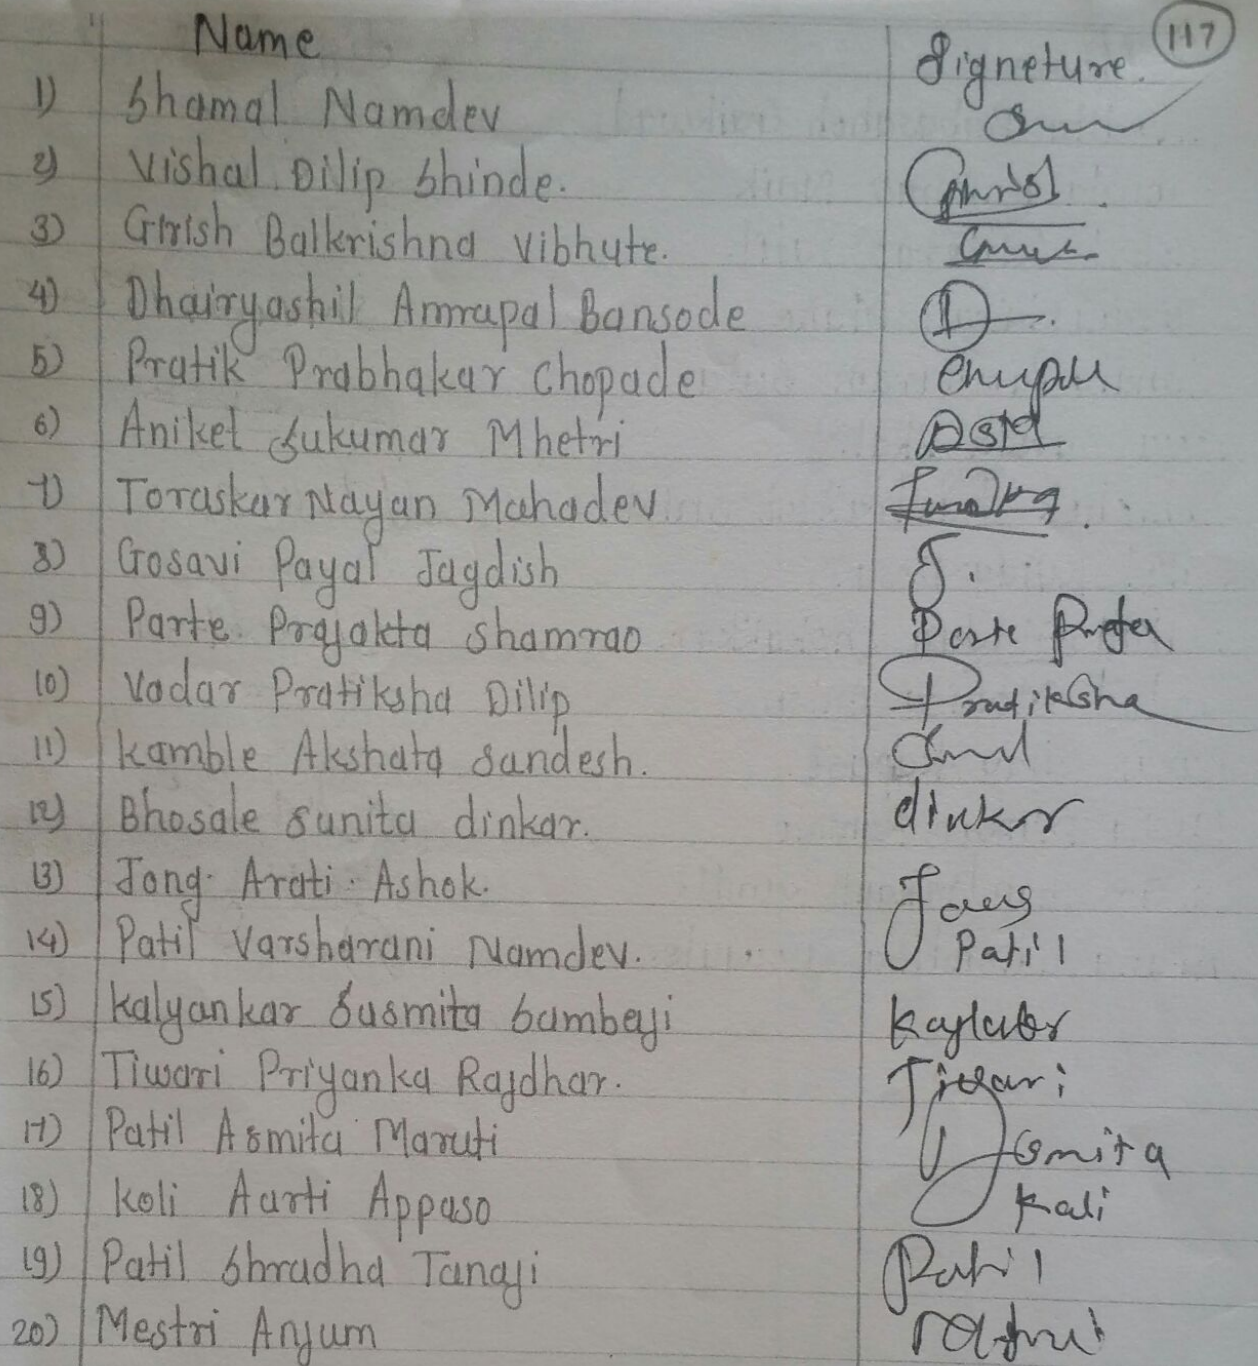 117
Name Signeture.
1) Shamal Namdev
2) Vishal Dilip Shinde.
3) Girish Balkrishna Vibhute.
4) Dhairyashil Amrapal Bansode
5) Pratik Prabhakar Chopade
6) Aniket Sukumar Mhetri
7) Toraskar Nayan Mahadev
8) Gosavi Payal Jagdish
9) Parte. Prajakta Shamrao Parte
10) Vadar Pratiksha Dilip Pratiksha
11) Kamble Akshata Sandesh.
12) Bhosale Sunita dinkar. dinkar
13) Jong. Arati. Ashok.
14) Patil Varsharani Namdev. Patil
15) Kalyankar Susmita Sambaji
16) Tiwari Priyanka Rajdhar. Tiwari
17) Patil Asmita Maruti Asmita
18) Koli Aarti Appaso Kali
19) Patil Shradha Tanaji Patil
20) Mestri Anjum